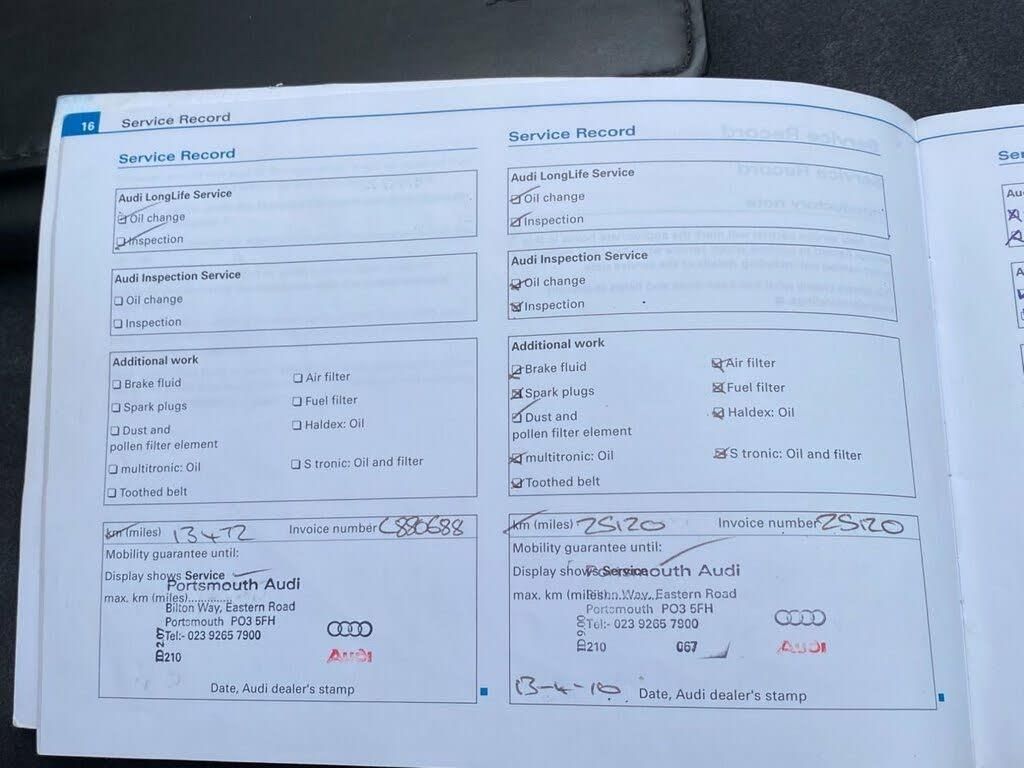 16
Service Record
Service Record
Audi LongLife Service
Oil change
Inspection
Audi Inspection Service
Oil change
Inspection
Additional work
Brake fluid
Air filter
Spark plugs
Fuel filter
Dust and
pollen filter element
Haldex: Oil
multitronic: Oil
S tronic: Oil and filter
Toothed belt
km (miles) 13472 Invoice number C880688
Mobility guarantee until:
Display shows Service
Portsmouth Audi
max. km (miles)..............
Bilton Way, Eastern Road
Portsmouth PO3 5FH
Tel:- 023 9265 7900
210
Audi
Date, Audi dealer's stamp
Service Record
Audi LongLife Service
Oil change
Inspection
Audi Inspection Service
Oil change
Inspection
Additional work
Brake fluid
Air filter
Spark plugs
Fuel filter
Dust and
pollen filter element
Haldex: Oil
multitronic: Oil
S tronic: Oil and filter
Toothed belt
km (miles) 25120 Invoice number 25120
Mobility guarantee until:
Display shows Service
Portsmouth Audi
max. km (miles)
Bilton Way, Eastern Road
Portsmouth PO3 5FH
Tel:- 023 9265 7900
210 067
Audi
13-4-10 Date, Audi dealer's stamp
Ser
Au
A